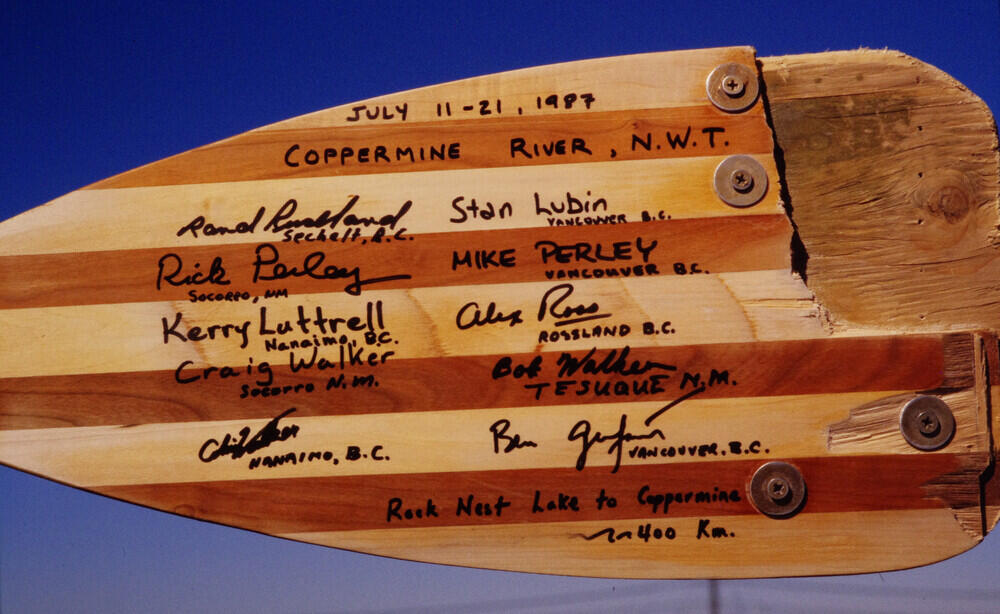 JULY 11-21, 1987
COPPERMINE RIVER, N.W.T.
Sechelt, B.C.
Stan Lubin
VANCOUVER B.C.
Rick Perley
SOCORRO, NM
MIKE PERLEY
VANCOUVER B.C.
Kerry Luttrell
Nanaimo, B.C.
Alex Ross
ROSSLAND B.C.
Craig Walker
SOCORRO N.M.
Bob Walker
TESUQUE N.M.
NANAIMO, B.C.
Ben
VANCOUVER, B.C.
Rock Nest Lake to Coppermine
~400 Km.